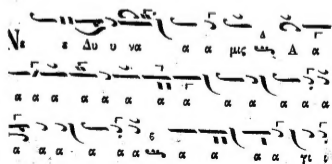 Νε ε Δυ υ να α α μις Δ α
α α α α α α α α α α α α α
α α α α α α α α α γι ι